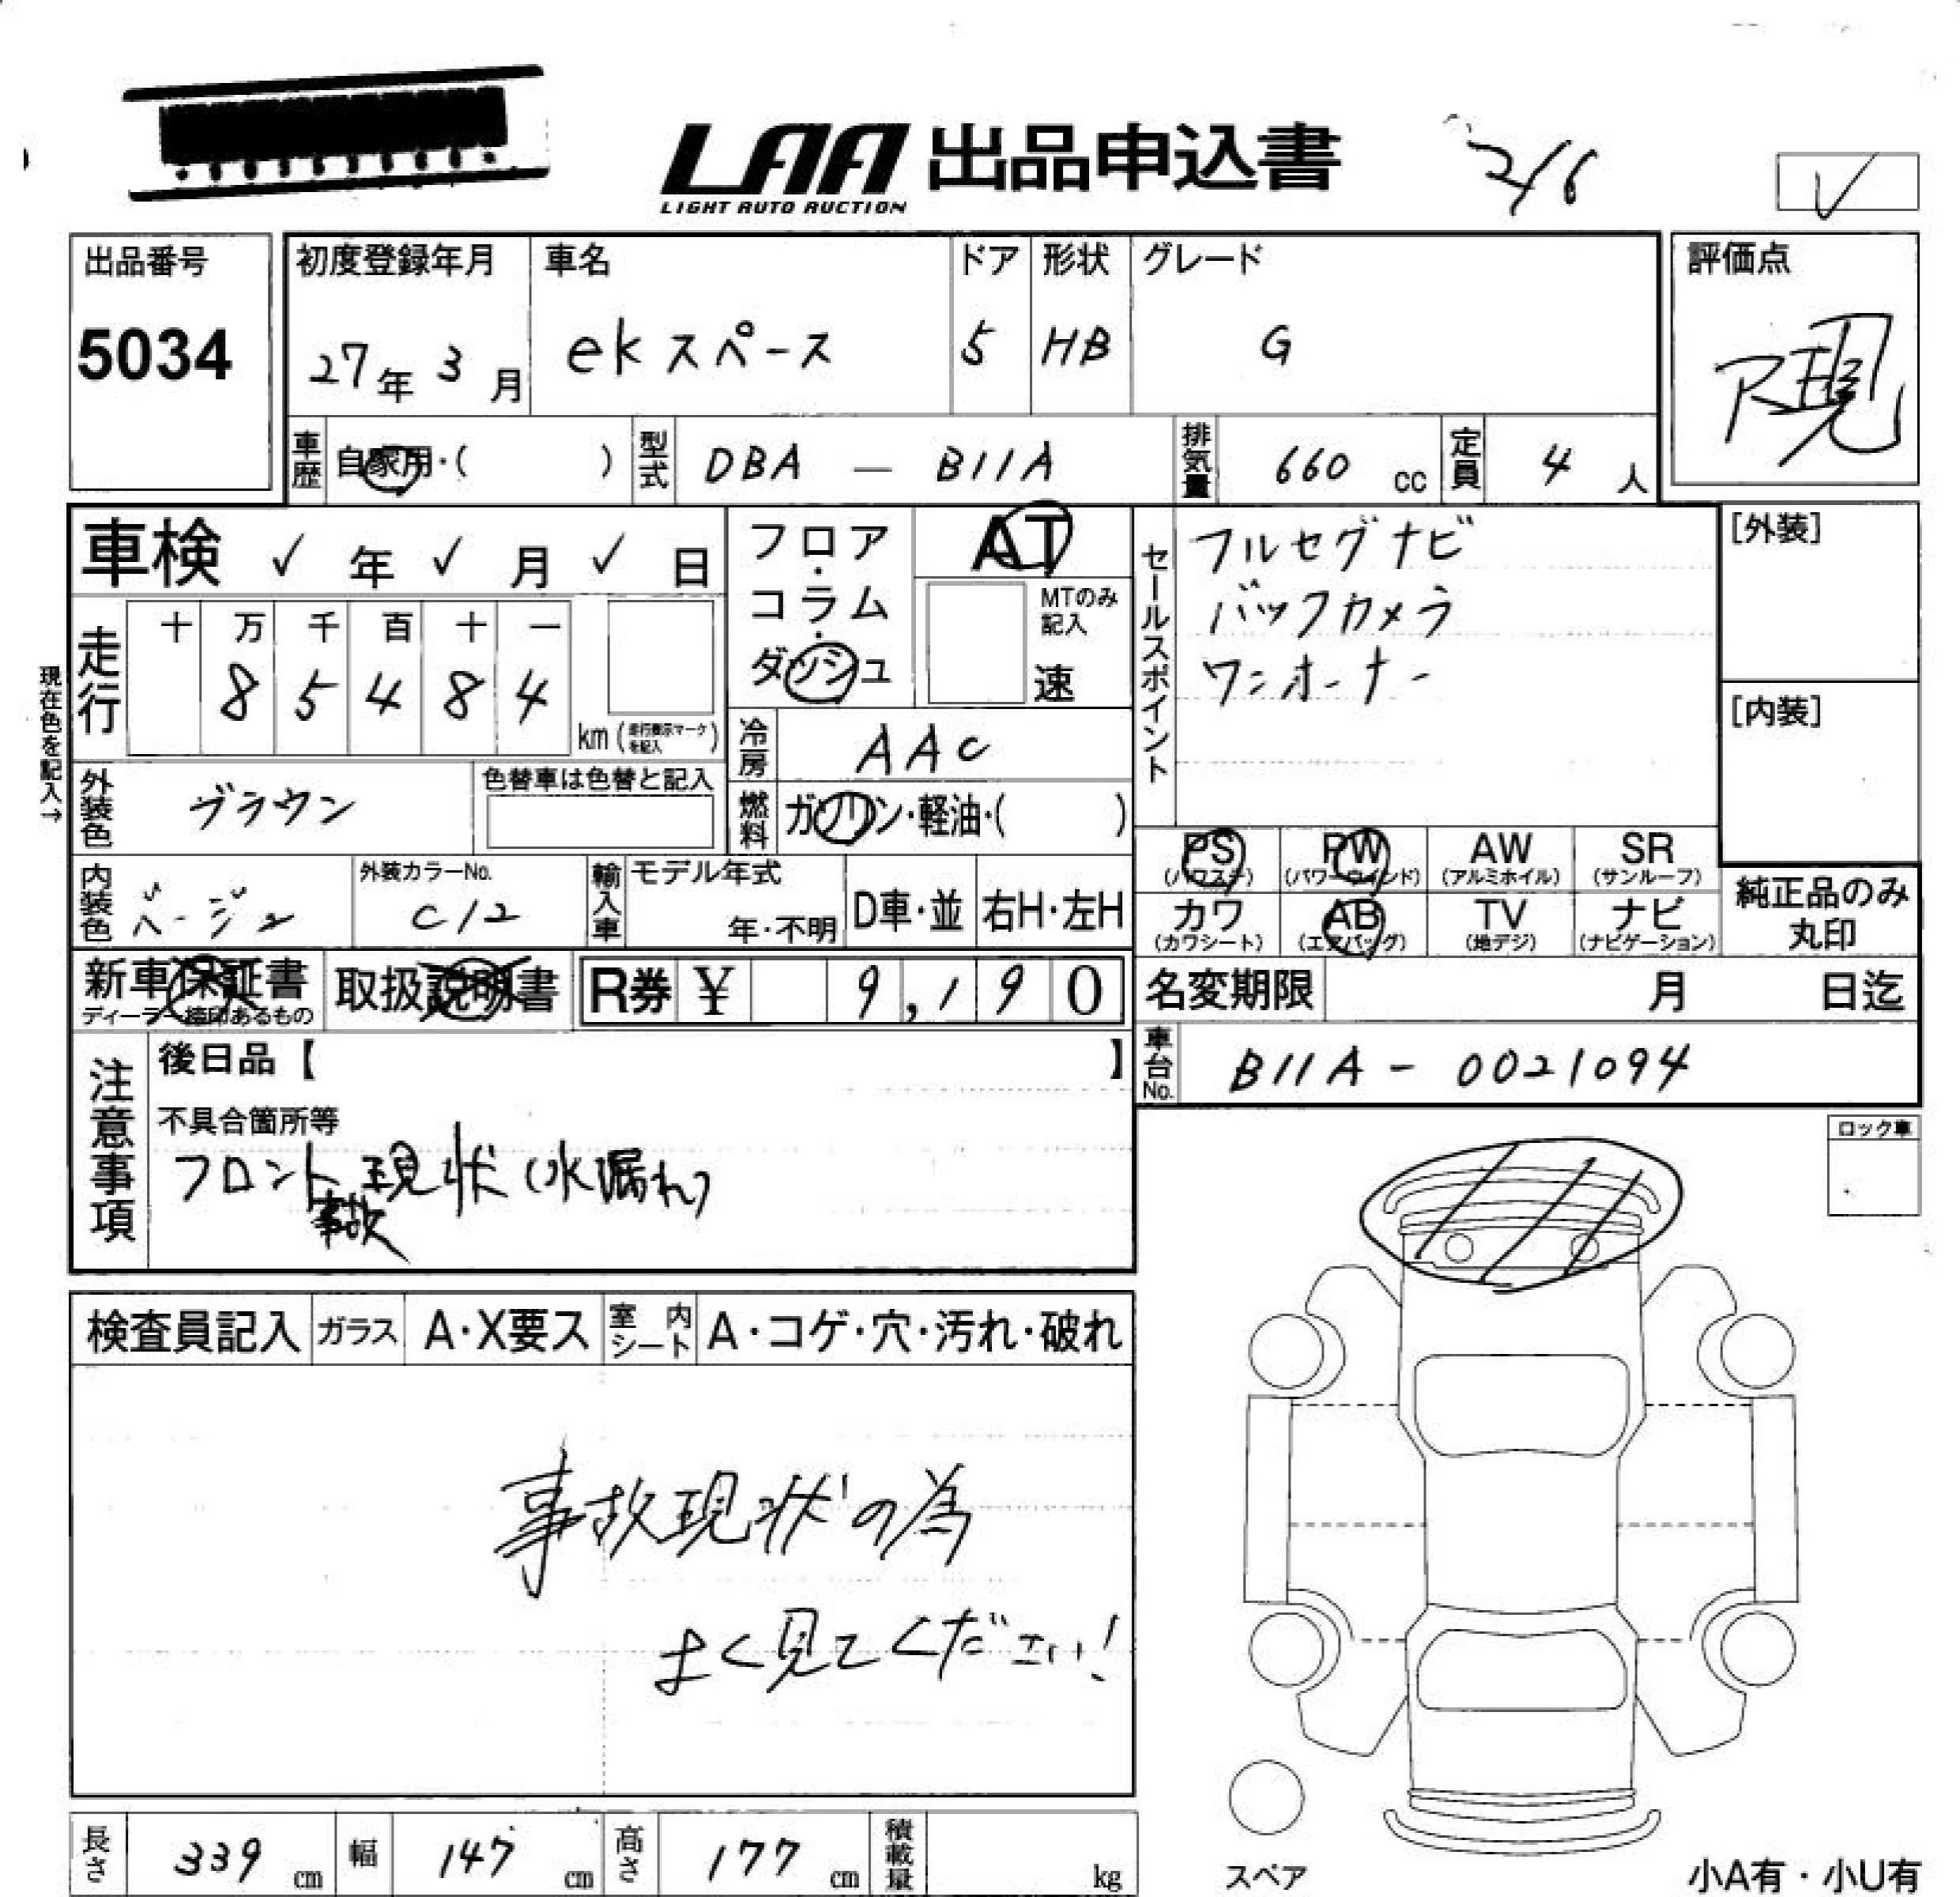 LAA 出品申込書 2/6
LIGHT AUTO AUCTION
出品番号 5034
初度登録年月 27年 3月
車名 ekスペース
ドア 5
形状 HB
グレード G
評価点 R現
車歴 自家用・( )
型式 DBA — B11A
排気量 660 cc
定員 4 人
車検 ✓年 ✓月 ✓日
フロア・コラム・ダッシュ
AT
MTのみ記入
速
セールスポイント
フルセグナビ
バックカメラ
ワンオーナー
[外装]
[内装]
現在色を記入→
走行 十 万 千 百 十 一
8 5 4 8 4
km(走行表示マークを記入)
冷房 AAC
燃料 ガソリン・軽油・( )
外装色 ブラウン
色替車は色替と記入
内装色 ベージュ
外装カラーNo. C12
輸入車 モデル年式
年・不明 D車・並 右H・左H
PS PW AW SR
(パワステ) (パワーウインド) (アルミホイル) (サンルーフ)
カワ AB TV ナビ
(カワシート) (エアバッグ) (地デジ) (ナビゲーション)
純正品のみ
丸印
新車保証書
ディーラー捺印あるもの
取扱説明書
R券 ¥ 9,190
名変期限 月 日迄
車台No. B11A - 0021094
注意事項
後日品【 】
不具合箇所等
フロント事故現状(水漏れ)
ロック車
検査員記入 ガラス A・X要ス 室内シート A・コゲ・穴・汚れ・破れ
事故現状の為
よく見てください!
長さ 339 cm 幅 147 cm 高さ 177 cm 積載量 kg
スペア
小A有・小U有